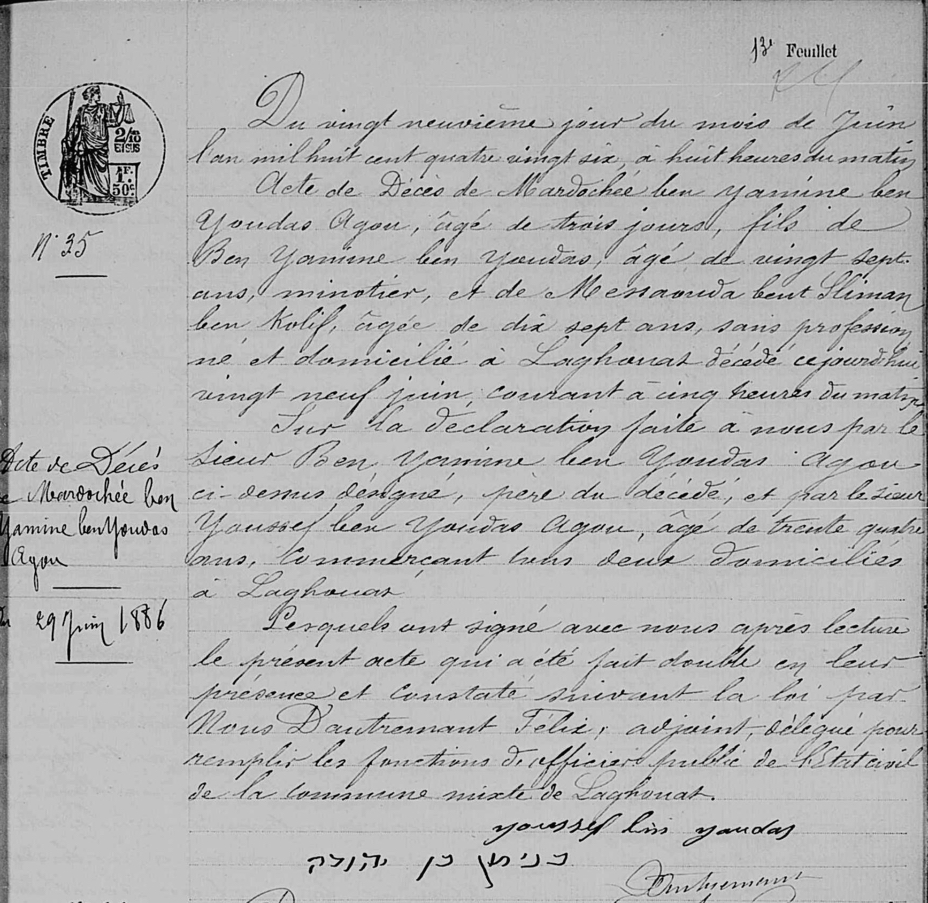 13e Feuillet
TIMBRE
2/10 EN SUS
1F.
50c
Du vingt neuvième jour du mois de Juin
l'an mil huit cent quatre vingt six, à huit heures du matin
Acte de Décès de Mardochée ben Yamine ben
Youdas Agou, âgé de trois jours, fils de
N° 35
Ben Yamine ben Youdas, âgé de vingt sept
ans, minotier, et de Messaouda bent Sliman
ben Kolif, âgée de dix sept ans, sans profession
né et domicilié à Laghouat décédé cejourd'hui
vingt neuf juin, courant à cinq heures du matin
Sur la déclaration faite à nous par le
Sieur Ben Yamine ben Youdas Agou
ci-dessus désigné, père du décédé, et par le sieur
Youssef ben Youdas Agou, âgé de trente quatre
ans, Commerçant tous deux domiciliés
à Laghouat
Acte de Décès
de Mardochée ben
Yamine ben Youdas
Agou
29 Juin 1886
Lesquels ont signé avec nous après lecture
le présent acte qui a été fait double en leur
présence et constaté suivant la loi par
Nous Dautremant Félix, adjoint, délégué pour
remplir les fonctions d'officier public de l'Etat civil
de la commune mixte de Laghouat.
youssef bin youdas
בנימן בן יהודה
Dautremant